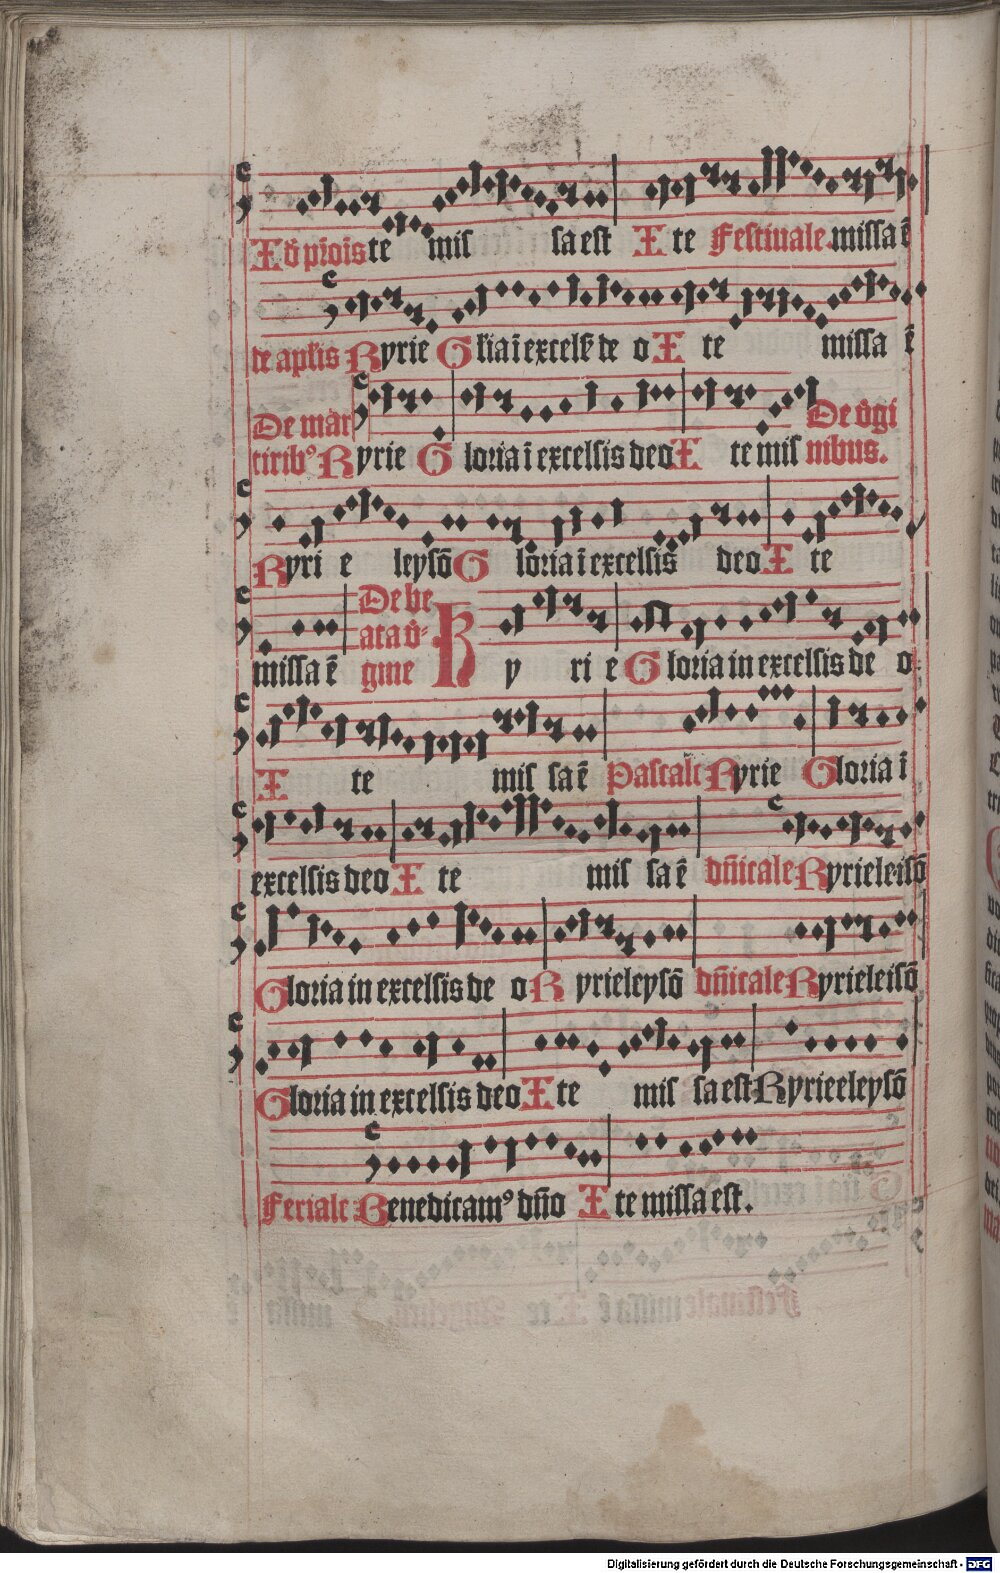 te mis sa est Ite Festiuale. missa ē
de apłis Kyrie Glia ī excelẜ de o Ite missa ē
De mar De v̄gi
tirib⁹ Kyrie Gloria ī excelsis deo Ite mis nibus.
Kyri e leysō Gloria ī excelsis deo Ite
De be
ata v̄-
missa ē gine Kyrie Gloria in excelsis de o
Ite mis sa ē Pascale Kyrie Gloria ī
excelsis deo Ite mis sa ē dn̄icale Kyrieleisō
Gloria in excelsis de o Kyrieleysō dn̄icale Kyrieleisō
Gloria in excelsis deo Ite mis sa est Kyrieeleysō
Feriale Benedicam⁹ dn̄o Ite missa est.
Digitalisierung gefördert durch die Deutsche Forschungsgemeinschaft - DFG